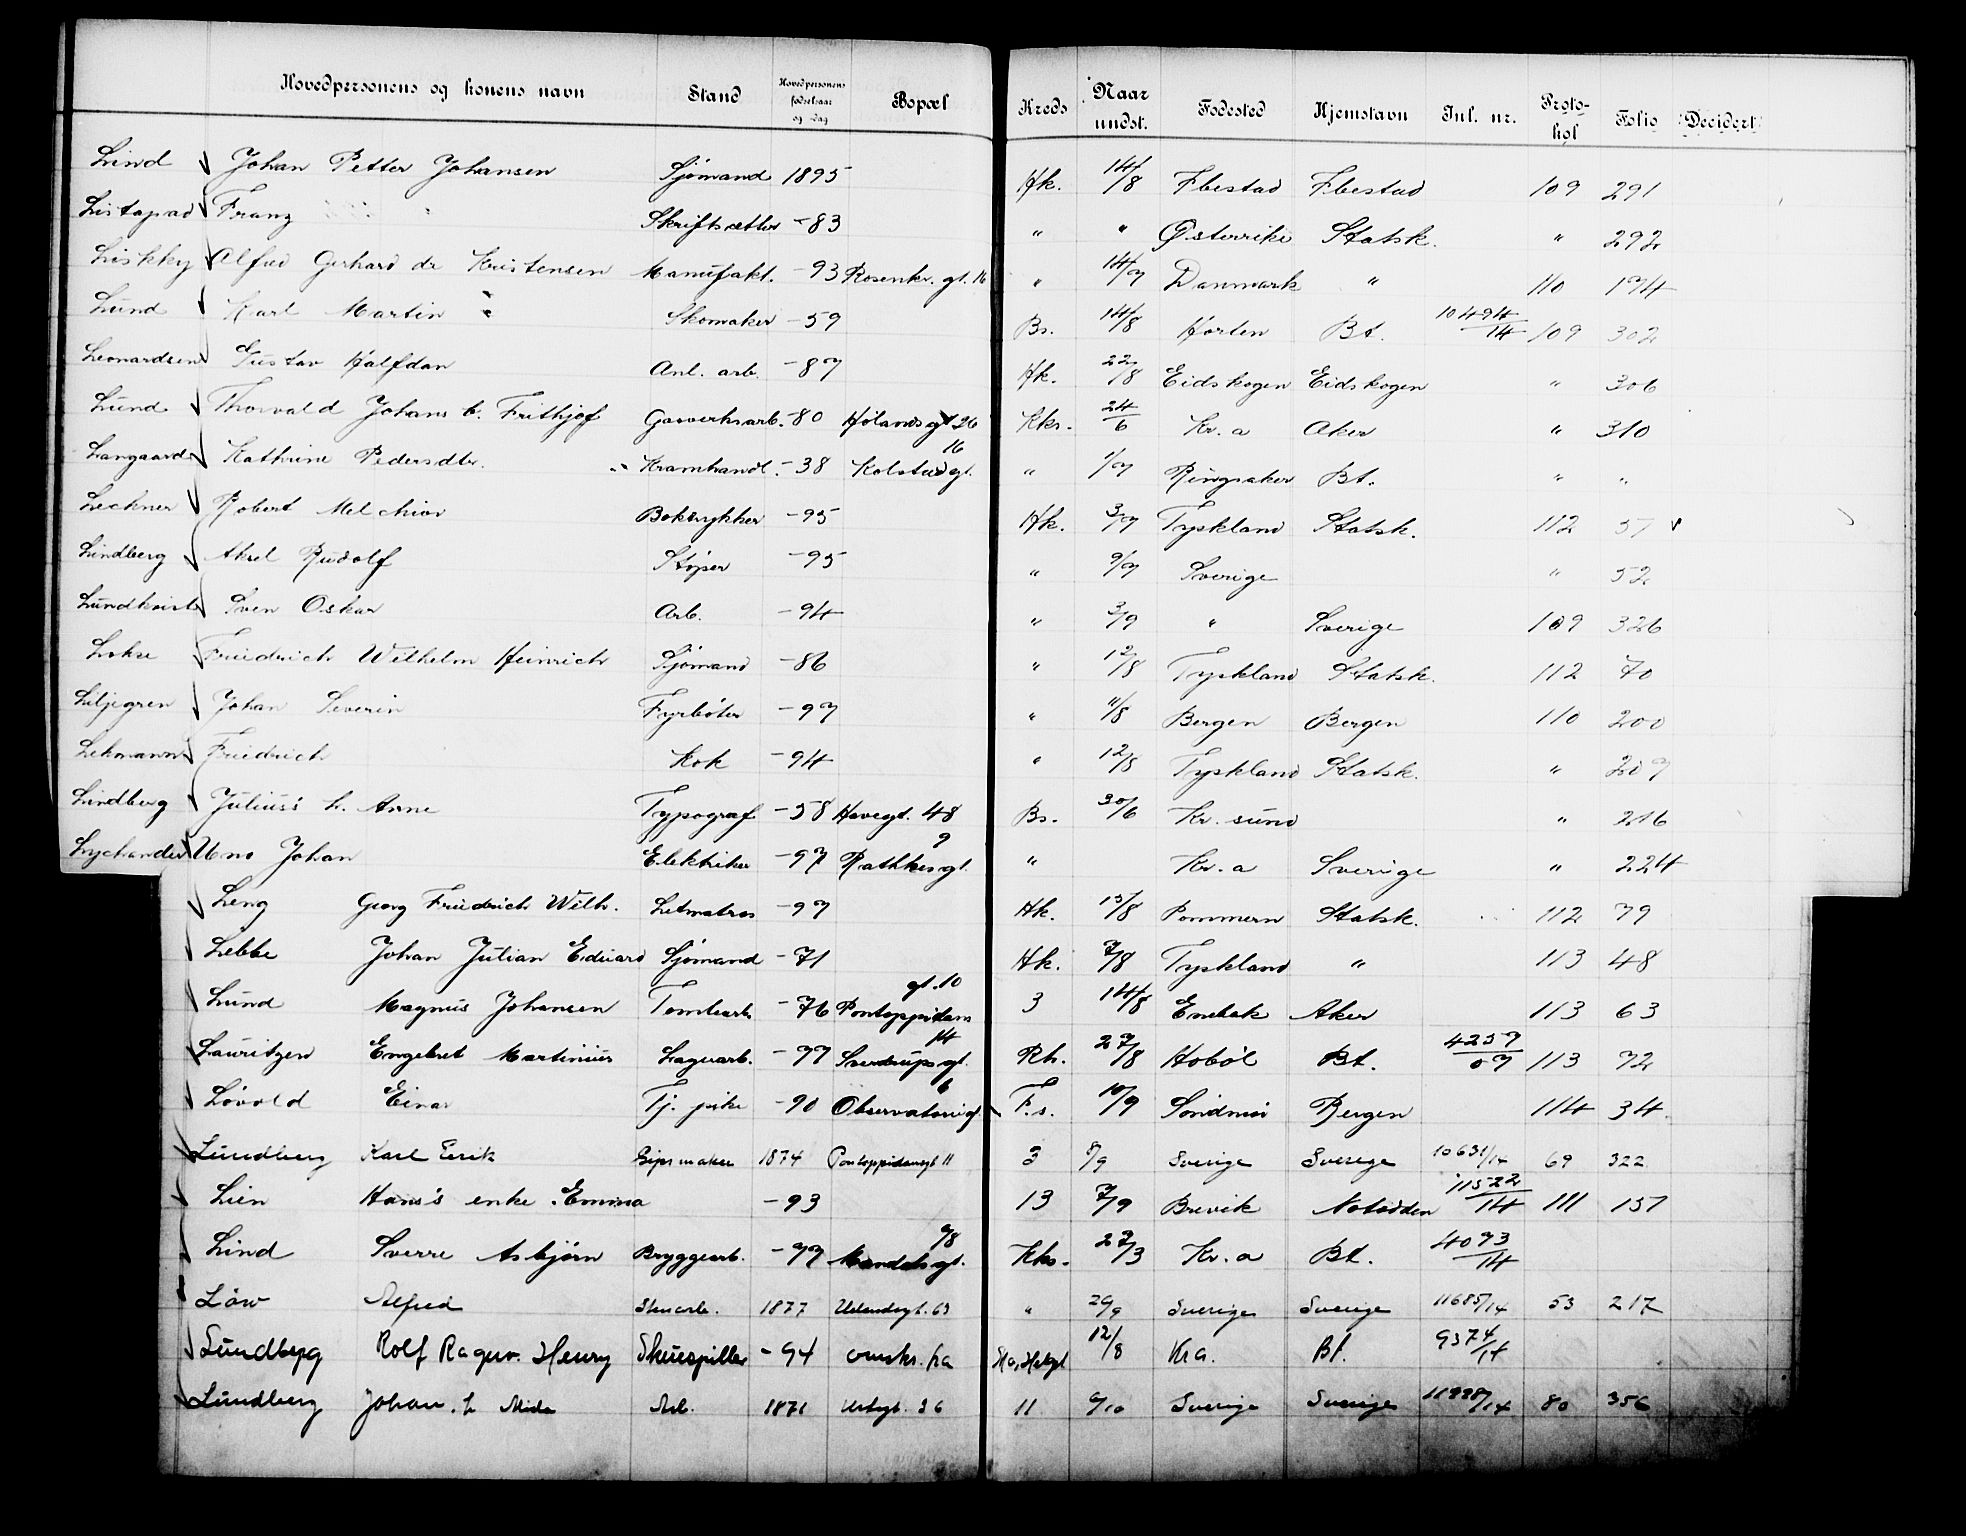 Hovedpersonens og konens navn Stand Hovedpersonens fødselsaar og dag Bopæl Kreds Naar undst. Fødested Hjemstavn Inl. nr. Protokol Folio Decidert
Lind Johan Petter Johansen Sjømand 1895 Hk. 14/8 Fbestad Fbestad 109 291
Listapad Franz Skriftsætter -83 " " Østerrike Statsk. " 292
Liskky Alfred Gerhard de Kristensen Manufakt. -93 Rosenkr. gt. 16 " 14/7 Danmark " 110 174
Lund Karl Martin Skomaker -59 Bs. 14/8 Horten Bt. 10494/14 109 302
Leonardsen Gustav Halfdan Anl. arb. -87 Hk. 22/8 Eidskogen Eidskogen " 306
Lund Thorvald Johans h. Frithjof Gasverksarb. -80 Hølandsgt 26 Kks. 24/6 Kr.a Aker " 310
Langaard Kathrine Pedersdtr. Kramhandl. -38 Kolstadgt. 16 " 1/7 Ringsaker Bt. " "
Lechner Robert Melchior Boktrykker -95 Hk. 3/7 Tyskland Statsk. 112 37
Lindberg Aksel Rudolf Støper -95 " 9/7 Sverige " 52
Lundkvist Sven Oskar Arb. -94 " 3/9 " Sverige 109 326
Lokse Friedrich Wilhelm Heinrich Sjømand -86 " 12/8 Tyskland Statsk. 112 70
Liljegren Johan Severin Fyrbøter -97 " 11/8 Bergen Bergen 110 200
Lehmann Friedrich Kok -94 " 12/8 Tyskland Statsk. " 207
Lindberg Julius's h. Anne Typograf -58 Havegt. 48 Bs. 30/6 Kr. sund " 216
Lychander Uno Johan Elektriker -97 Rathkesgt. 9 " Kr.a Sverige " 224
Leng Georg Friedrich Wilh. Letmatros -97 Hk. 15/8 Pommern Statsk. 112 79
Lebbe Johan Julian Eduard Sjømand -71 Hk. 7/8 Tyskland " 113 48
Lund Magnus Johansen Tomtearb. -76 Pontoppidans gt. 10 3 14/8 Enebak Aker 113 63
Lauritzen Engebret Martinius Lagerarb. -77 Sverdrupsgt. 14 Rh. 27/8 Hobøl Bt. 4257/07 113 72
Løvold Einar Tj. pike -90 Observatoriegt. 6 F.s. 10/9 Søndmør Bergen 114 34
Lundberg Karl Erik Gipsmaker 1874 Pontoppidansgt 11 3 8/9 Sverige Sverige 10631/14 69 322
Lien Hans's enke Emma -93 13 7/9 Brevik Notodden 11522/14 111 157
Lind Sverre Asbjørn Bryggearb. -77 Mandalsgt. 7/8 Kks. 27/3 Kr.a Bt. 4093/14
Löw Alfred Stenarb. 1877 Uelandsgt. 63 " 26/9 Sverige Sverige 11685/14 53 217
Lundberg Rolf Ragnv. Henry Skuespiller -94 omskr. fra 12/8 Kra. Bt. 9374/14
Lundberg Johan h Arb. 1871 Urtegt. 36 11 6/10 Sverige Sverige 11998/14 80 356